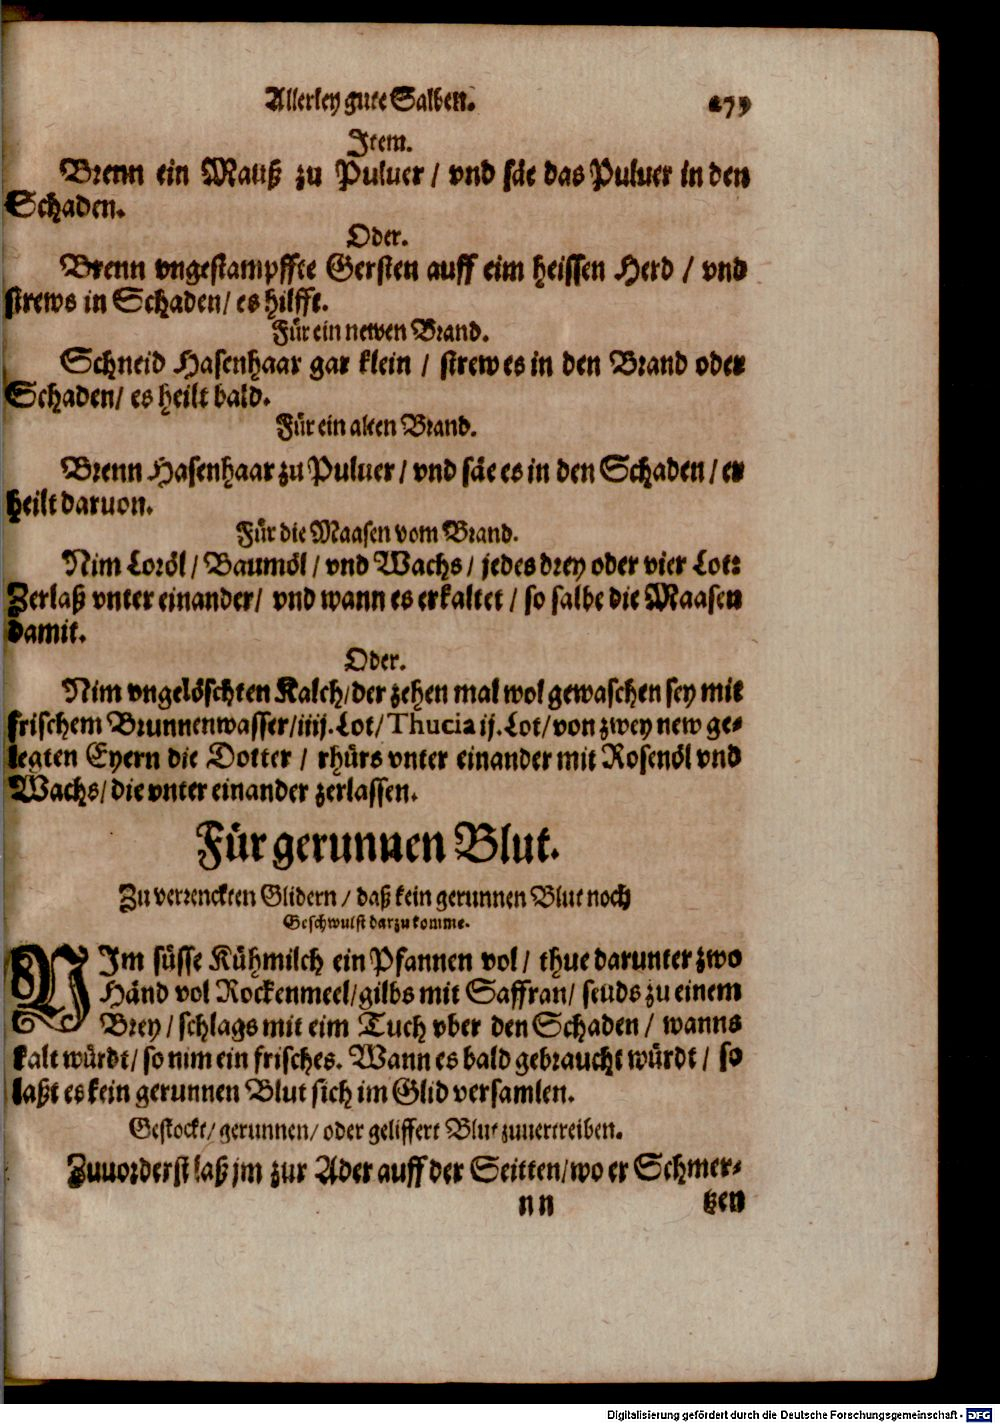 Allerley gute Salben. 273
Item.
Brenn ein Mauß zu Puluer / vnd säe das Puluer in den
Schaden.
Oder.
Brenn vngestampffte Gersten auff eim heissen Herd / vnd
strews in Schaden / es hilfft.
Für ein newen Brand.
Schneid Hasenhaar gar klein / strew es in den Brand oder
Schaden / es heilt bald.
Für ein alten Brand.
Brenn Hasenhaar zu Puluer / vnd säe es in den Schaden / er
heilt daruon.
Für die Maasen vom Brand.
Nim Loröl / Baumöl / vnd Wachs / jedes drey oder vier Lot:
Zerlaß vnter einander / vnd wann es erkaltet / so salbe die Maasen
damit.
Oder.
Nim vngelöschten Kalch / der zehen mal wol gewaschen sey mit
frischem Brunnenwasser / iiij. Lot / Thucia ij. Lot / von zwey new ge-
legten Eyern die Dotter / rhürs vnter einander mit Rosenöl vnd
Wachs / die vnter einander zerlassen.
Für gerunnen Blut.
Zu verrenckten Glidern / daß kein gerunnen Blut noch
Geschwulst darzu komme.
NIm süsse Kühmilch ein Pfannen vol / thue darunter zwo
Händ vol Rockenmeel / gilbs mit Saffran / seuds zu einem
Brey / schlags mit eim Tuch vber den Schaden / wanns
kalt würdt / so nim ein frisches. Wann es bald gebraucht würdt / so
laßt es kein gerunnen Blut sich im Glid versamlen.
Gestockt / gerunnen / oder geliffert Blut zuuertreiben.
Zuuorderst laß jm zur Ader auff der Seitten / wo er Schmer-
nn tzen
Digitalisierung gefördert durch die Deutsche Forschungsgemeinschaft - DFG